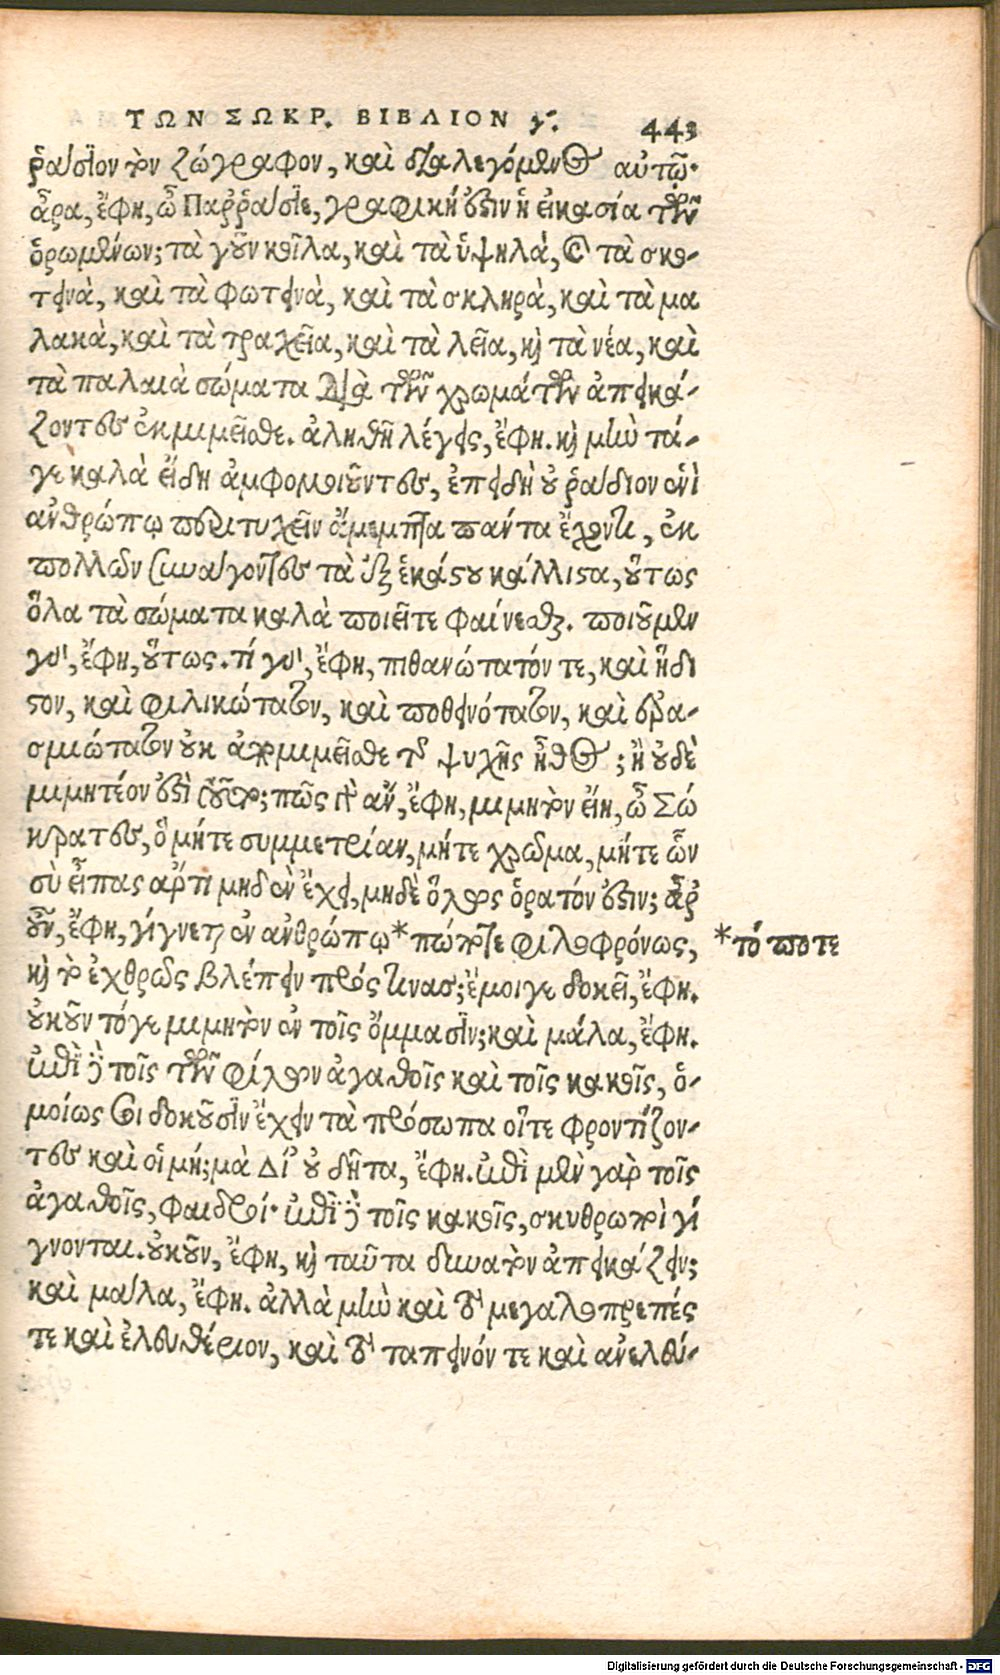 ΤΩΝ ΣΩΚΡ. ΒΙΒΛΙΟΝ γ. 443
ῥάσιον τὸν ζώγραφον, καὶ διαλεγόμενος αὐτῷ·
ἆρα, ἔφη, ὦ Παῤῥάσιε, γραφική ἐστιν ἡ εἰκασία τῶν
ὁρωμένων; τὰ γοῦν κοῖλα, καὶ τὰ ὑψηλὰ, καὶ τὰ σκο-
τεινὰ, καὶ τὰ φωτεινὰ, καὶ τὰ σκληρὰ, καὶ τὰ μα
λακὰ, καὶ τὰ τραχεῖα, καὶ τὰ λεῖα, καὶ τὰ νέα, καὶ
τὰ παλαιὰ σώματα διὰ τῶν χρωμάτων ἀπεικά-
ζοντες ἐκμιμεῖσθε. ἀληθῆ λέγεις, ἔφη. καὶ μὴν τά-
γε καλὰ εἴδη ἀμφομοιοῦντες, ἐπειδὴ οὐ ῥάδιον ἑνὶ
ἀνθρώπῳ περιτυχεῖν ἄμεμπτα πάντα ἔχοντι, ἐκ
πολλῶν συνάγοντες τὰ ἐξ ἑκάστου κάλλιστα, οὕτως
ὅλα τὰ σώματα καλὰ ποιεῖτε φαίνεσθαι. ποιοῦμεν
γὰρ, ἔφη, οὕτως. τί γὰρ, ἔφη, πιθανώτατόν τε, καὶ ἥδι
στον, καὶ φιλικώτατον, καὶ ποθεινότατον, καὶ ἐρα-
σμιώτατον οὐκ ἀπομιμεῖσθε τῆς ψυχῆς ἦθος; ἢ οὐδὲ
μιμητέον ἐστὶ τοῦτο; πῶς γὰρ ἂν, ἔφη, μιμητὸν εἴη, ὦ Σώ
κρατες, ὃ μήτε συμμετρίαν, μήτε χρῶμα, μήτε ὧν
σὺ εἶπας ἄρτι μηδὲν ἔχει, μηδὲ ὅλως ὁρατόν ἐστιν; ἆρ
οὖν, ἔφη, γίγνεται ἐν ἀνθρώπῳ* πώποτε φιλοφρόνως,
καὶ τὸ ἐχθρῶς βλέπειν πρός τινας; ἔμοιγε δοκεῖ, ἔφη.
οὐκοῦν τόγε μιμητὸν ἐν τοῖς ὄμμασιν; καὶ μάλα, ἔφη.
ἐπὶ δὲ τοῖς τῶν φίλων ἀγαθοῖς καὶ τοῖς κακοῖς, ὁ-
μοίως σοι δοκοῦσιν ἔχειν τὰ πρόσωπα οἵτε φροντίζον-
τες καὶ οἱ μή; μὰ Δί' οὐ δῆτα, ἔφη. ἐπὶ μὲν γὰρ τοῖς
ἀγαθοῖς, φαιδροί· ἐπὶ δὲ τοῖς κακοῖς, σκυθρωποὶ γί
γνονται. οὐκοῦν, ἔφη, καὶ ταῦτα δυνατὸν ἀπεικάζειν;
καὶ μάλα, ἔφη. ἀλλὰ μὴν καὶ τὸ μεγαλοπρεπές
τε καὶ ἐλευθέριον, καὶ τὸ ταπεινόν τε καὶ ἀνελεύ-
*τό ποτε
Digitalisierung gefördert durch die Deutsche Forschungsgemeinschaft - DFG